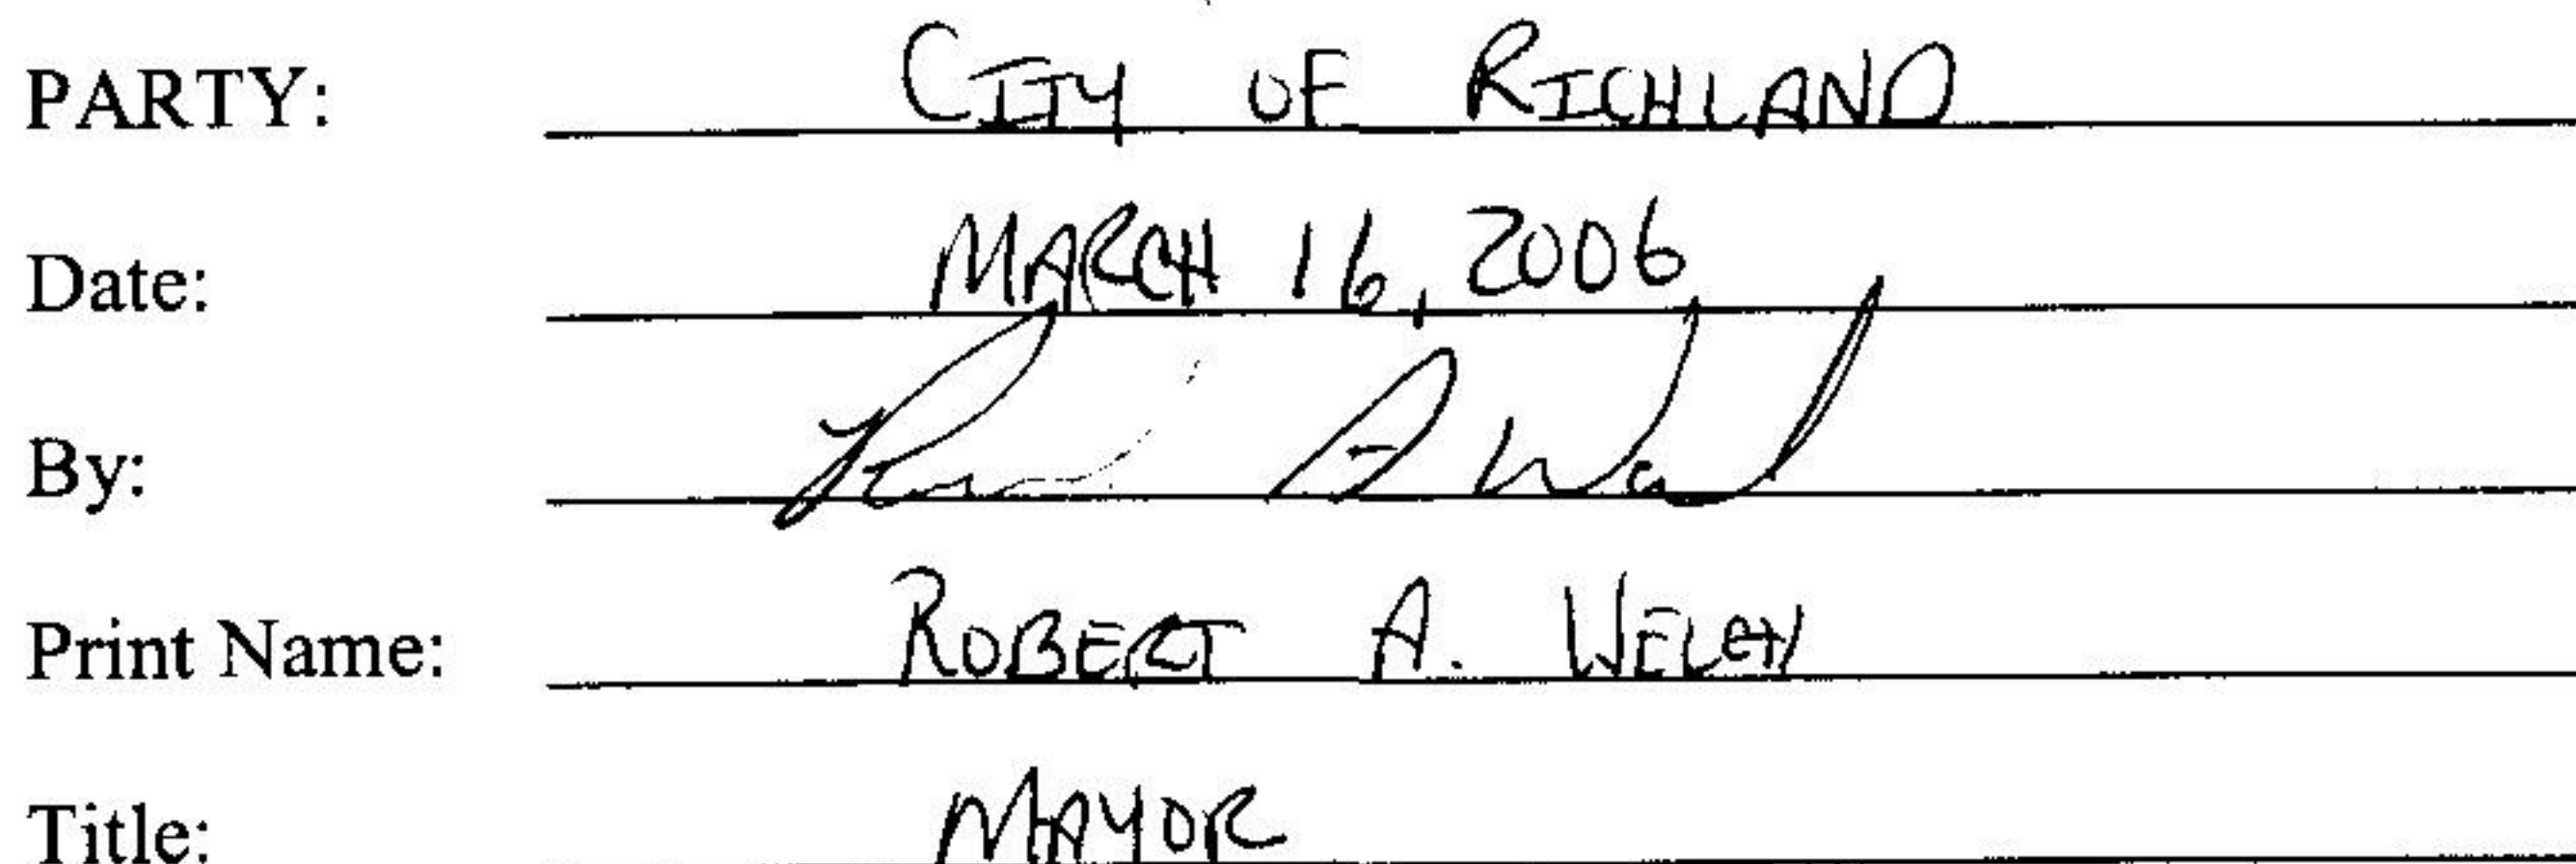 PARTY: CITY OF RICHLAND
Date: MARCH 16, 2006
By:
Print Name: ROBERT A. WELCH
Title: MAYOR